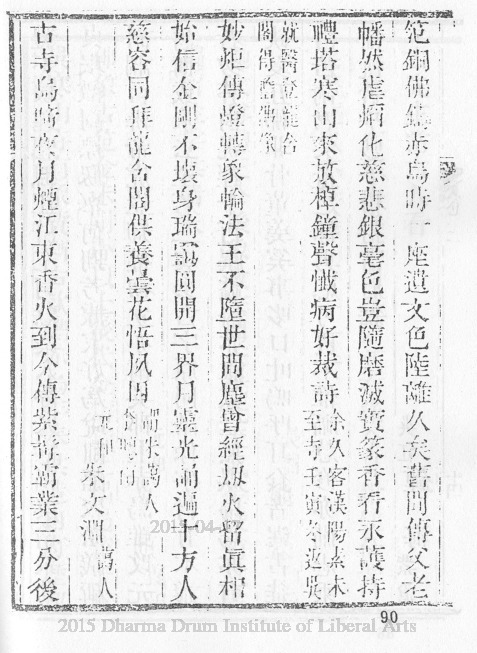 笵銅佛鑄赤烏時 座遺文色陸離久矣舊聞傳父老
幡然虐 化慈悲銀毫色豈隨磨滅寶篆香看永護持
禮塔寒山來放棹鐘聲懺病好裁詩
余久客漢陽素未
至寺壬寅冬返吳
就醫 龍舍
閣得瞻 像
妙炬傳燈轉象輪法王不墮世間塵曾經刼火留眞相
始信金剛不壞身瑞靄圓開三界月靈光誦遍十方人
慈容同拜龍舍閣供養曇花悟夙因
朱萬人
元和 朱文淵 萬人
古寺烏啼夜月煙江東香火到今傳紫髯霸業三分後
90
2015 Dharma Drum Institute of Liberal Arts